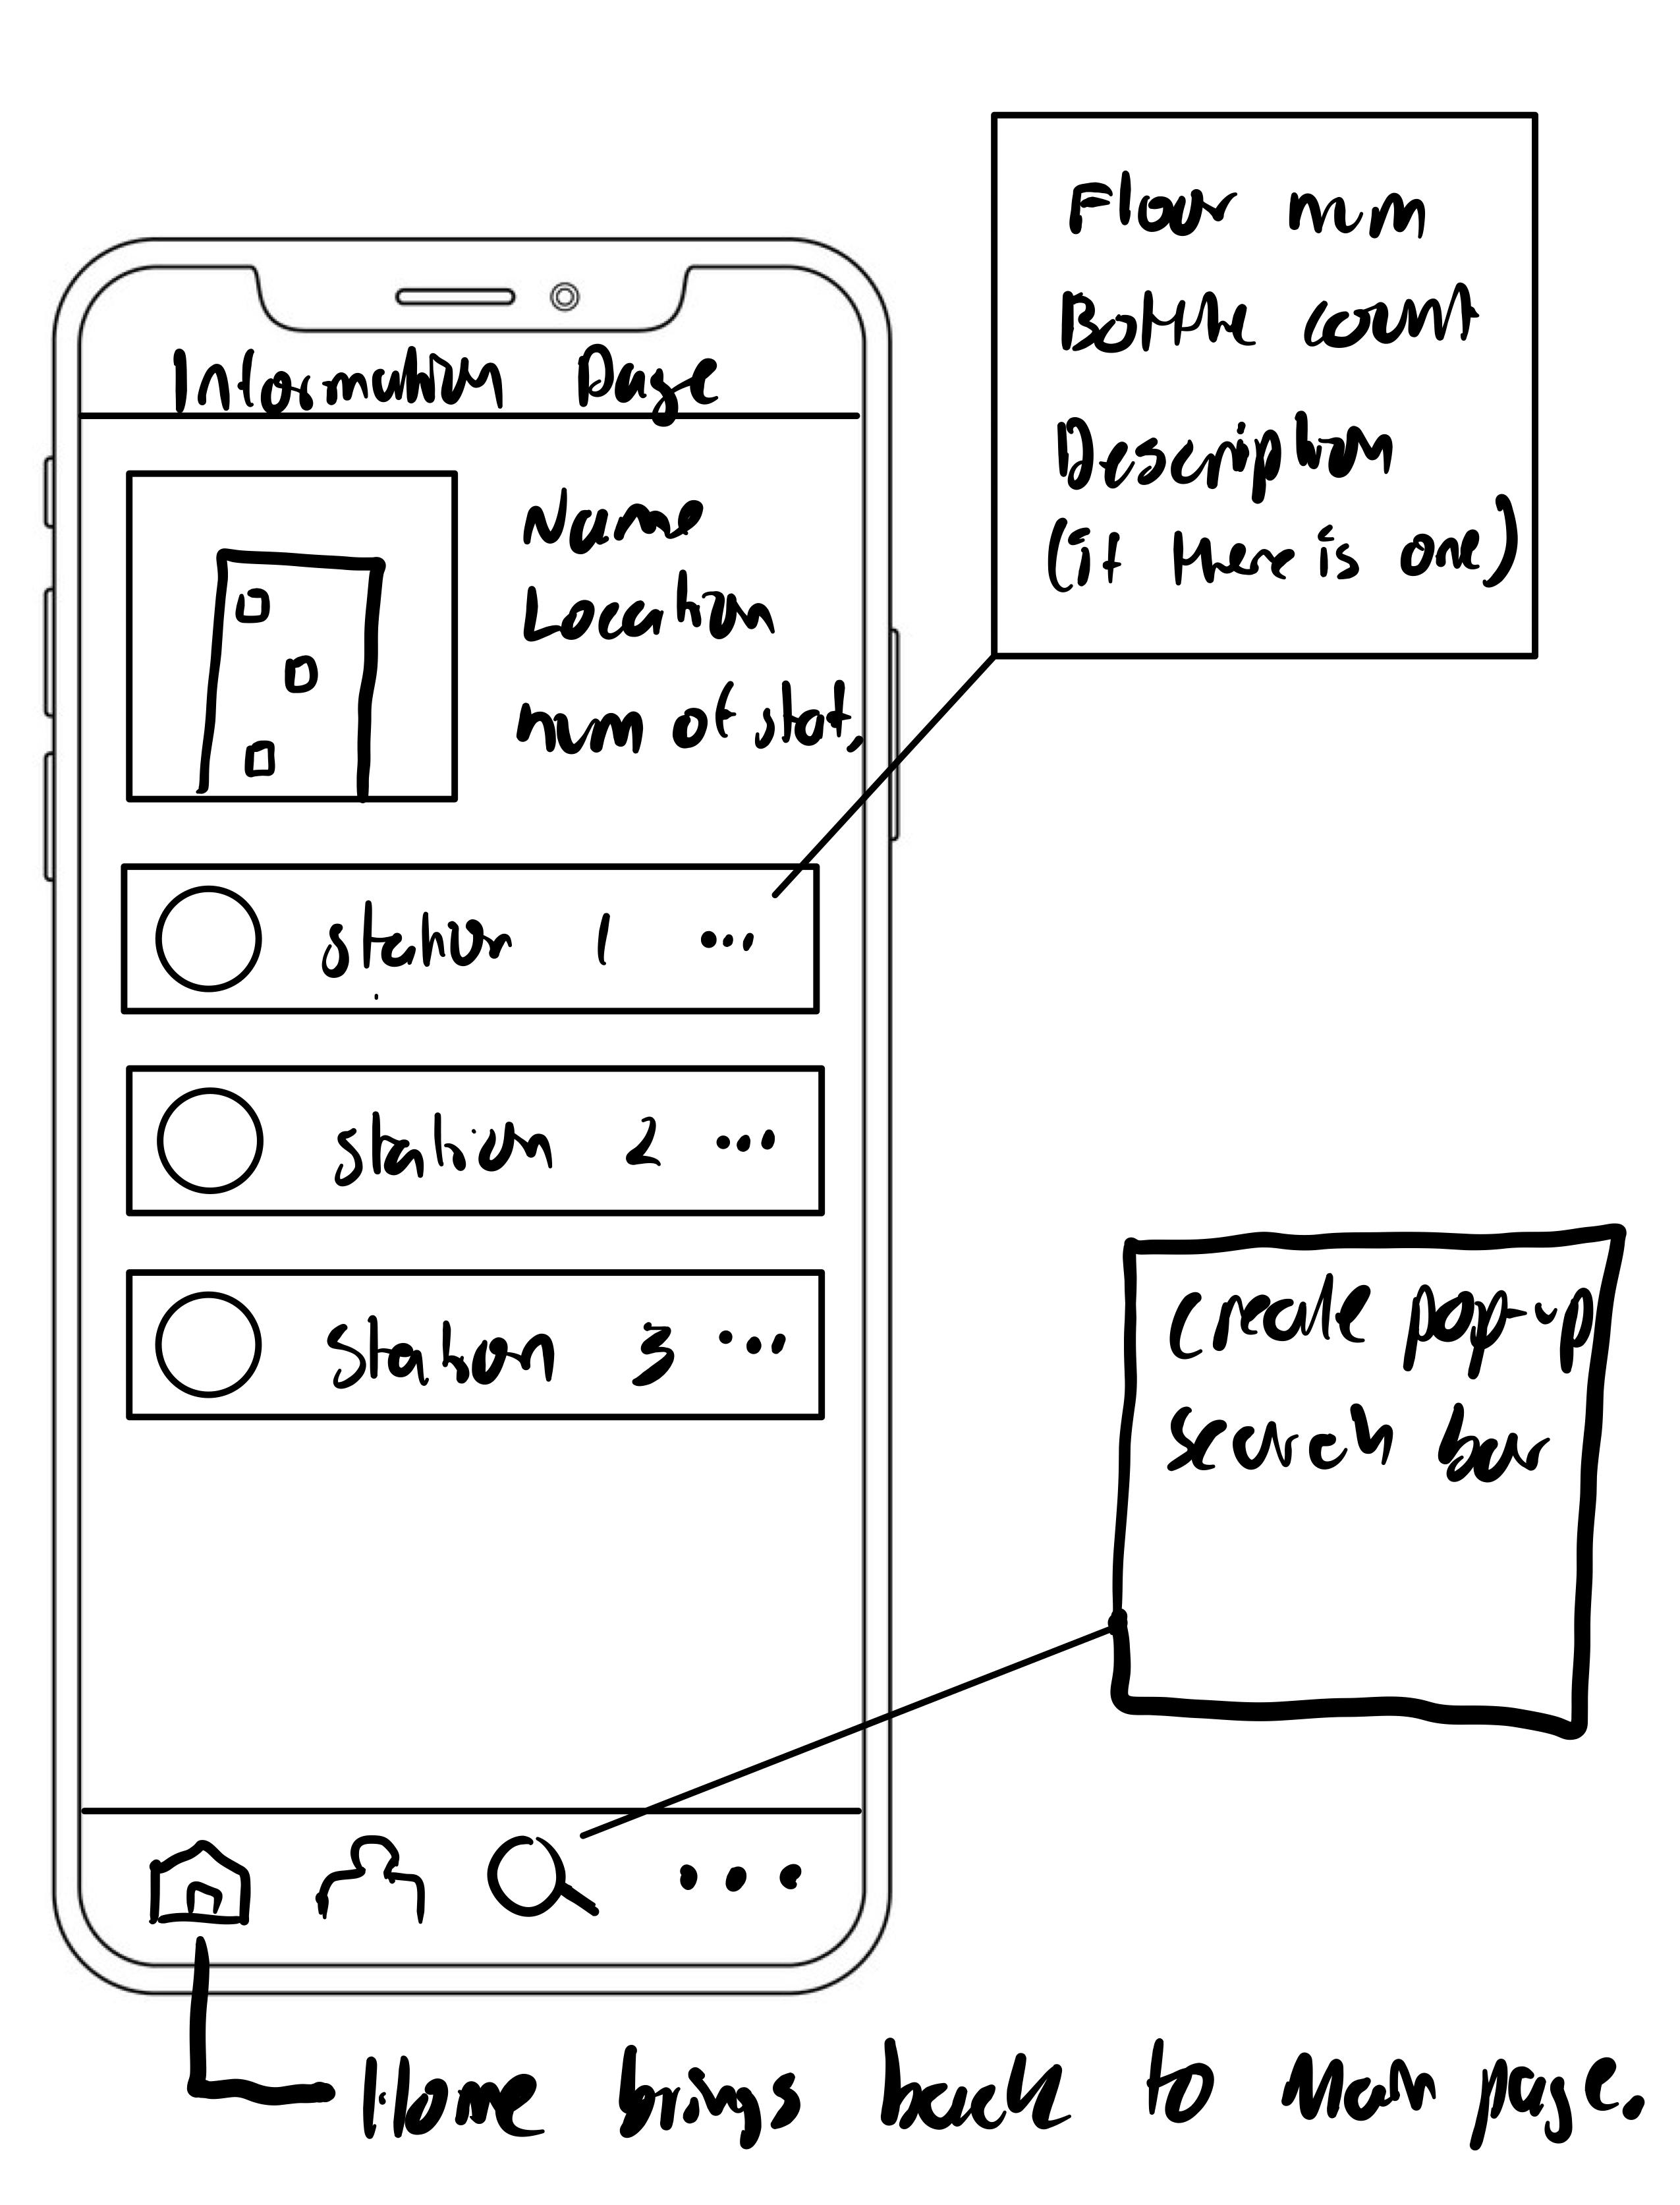 Information Page
Name
Location
num of stat.
station 1 ...
station 2 ...
station 3 ...
Floor num
Bottle count
Description
(if there is one)
create pop-up
search bar
Home brings back to Main page.